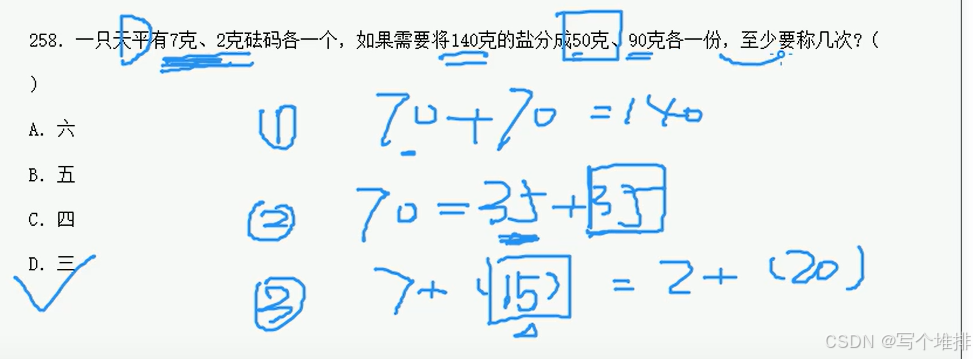 258. 一只天平有7克、2克砝码各一个，如果需要将140克的盐分成50克、90克各一份，至少要称几次？（
）
A. 六
① 70+70=140
B. 五
C. 四
② 70=35+35
D. 三
③ 7+(15)=2+(20)
CSDN @写个堆排